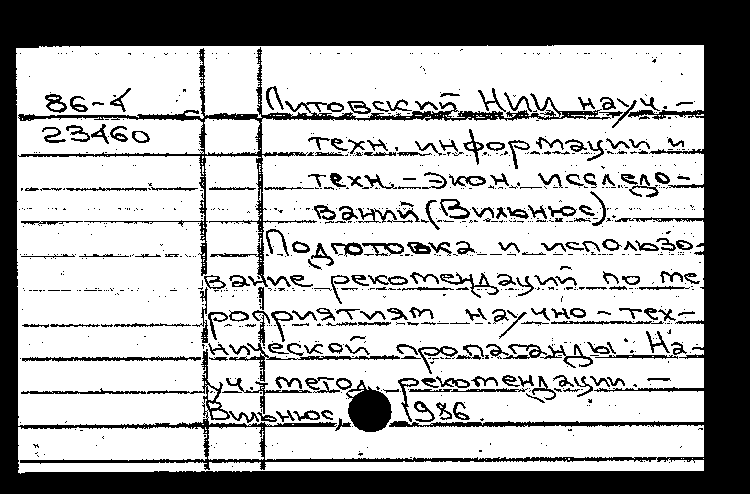 86-4 Литовский НИИ науч.-
23460 техн. информации и
техн.-экон. исследо-
ваний (Вильнюс).
Подготовка и использо-
вание рекомендаций по ме
роприятиям научно-тех-
нической пропаганды: На-
уч.-метод. рекомендации. –
Вильнюс, 1986.